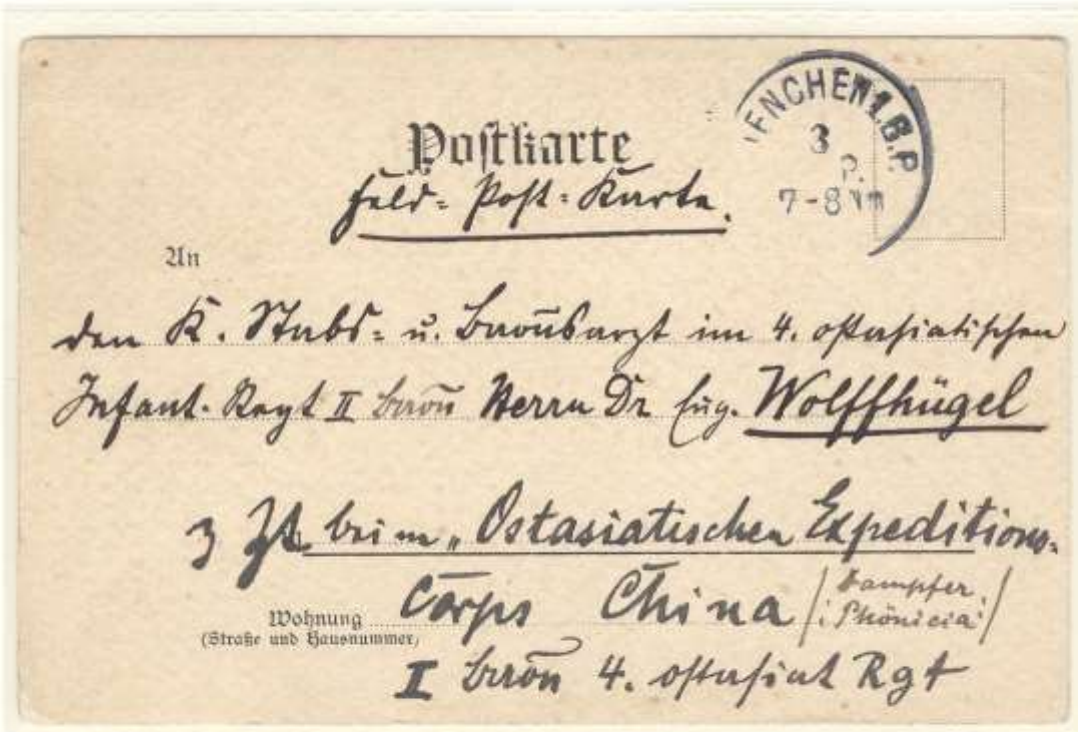 Postkarte
Feld-Post-Karte.
ENCHEN 1.B.P.
3
P.
7-8 Vm
An
den K. Stabs- u. Baonsarzt im 4. ostasiatischen
Infant. Regt II Baon Herrn Dr Eug. Wolffhügel
z Zt. beim „Ostasiatischen Expeditions-
Corps China (Dampfer
"Phönicia")
Wohnung
(Straße und Hausnummer)
I Baon 4. ostasiat Rgt